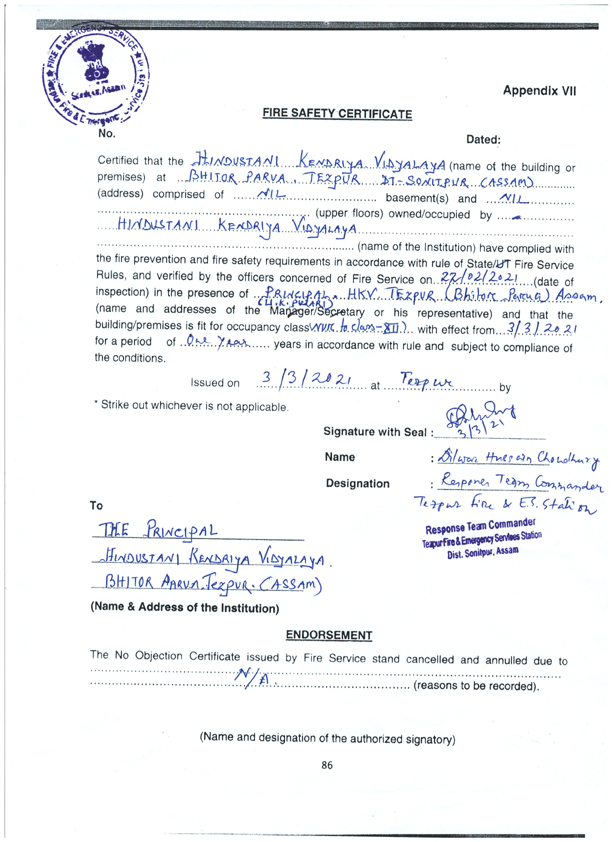 FIRE & EMERGENCY SERVICE
Sonitpur, Assam
Appendix VII
FIRE SAFETY CERTIFICATE
No.
Dated:
Certified that the HINDUSTANI KENDRIYA VIDYALAYA (name of the building or
premises) at BHITOR PARVA, TEZPUR DT-SONITPUR (ASSAM)
(address) comprised of NIL basement(s) and NIL
(upper floors) owned/occupied by
HINDUSTANI KENDRIYA VIDYALAYA
(name of the Institution) have complied with
the fire prevention and fire safety requirements in accordance with rule of State/UT Fire Service
Rules, and verified by the officers concerned of Fire Service on 22/02/2021 (date of
inspection) in the presence of PRINCIPAL, HKV TEZPUR (Bhitor Parua) Assam.
(name and addresses of the Manager/Secretary or his representative) and that the
building/premises is fit for occupancy class NUR to class-XII) with effect from 3/3/2021
for a period of One Year years in accordance with rule and subject to compliance of
the conditions.
Issued on 3/3/2021 at Tezpur by
* Strike out whichever is not applicable.
Signature with Seal : 3/3/21
Name : Dilwar Hussain Choudhury
Designation : Respones Team Commander
Tezpur Fire & E.S. Station
Response Team Commander
Tezpur Fire & Emergency Services Station
Dist. Sonitpur, Assam
To
THE PRINCIPAL
HINDUSTANI KENDRIYA VIDYALAYA.
BHITOR PARVA. TEZPUR. (ASSAM)
(Name & Address of the Institution)
ENDORSEMENT
The No Objection Certificate issued by Fire Service stand cancelled and annulled due to
N/A.
(reasons to be recorded).
(Name and designation of the authorized signatory)
86